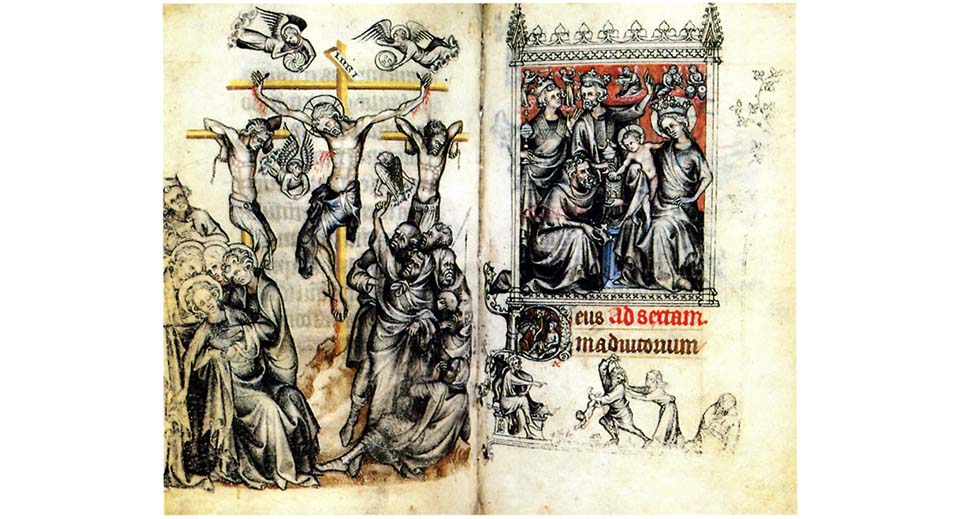 INRI
Deus Ad sextam.
in adiutorium